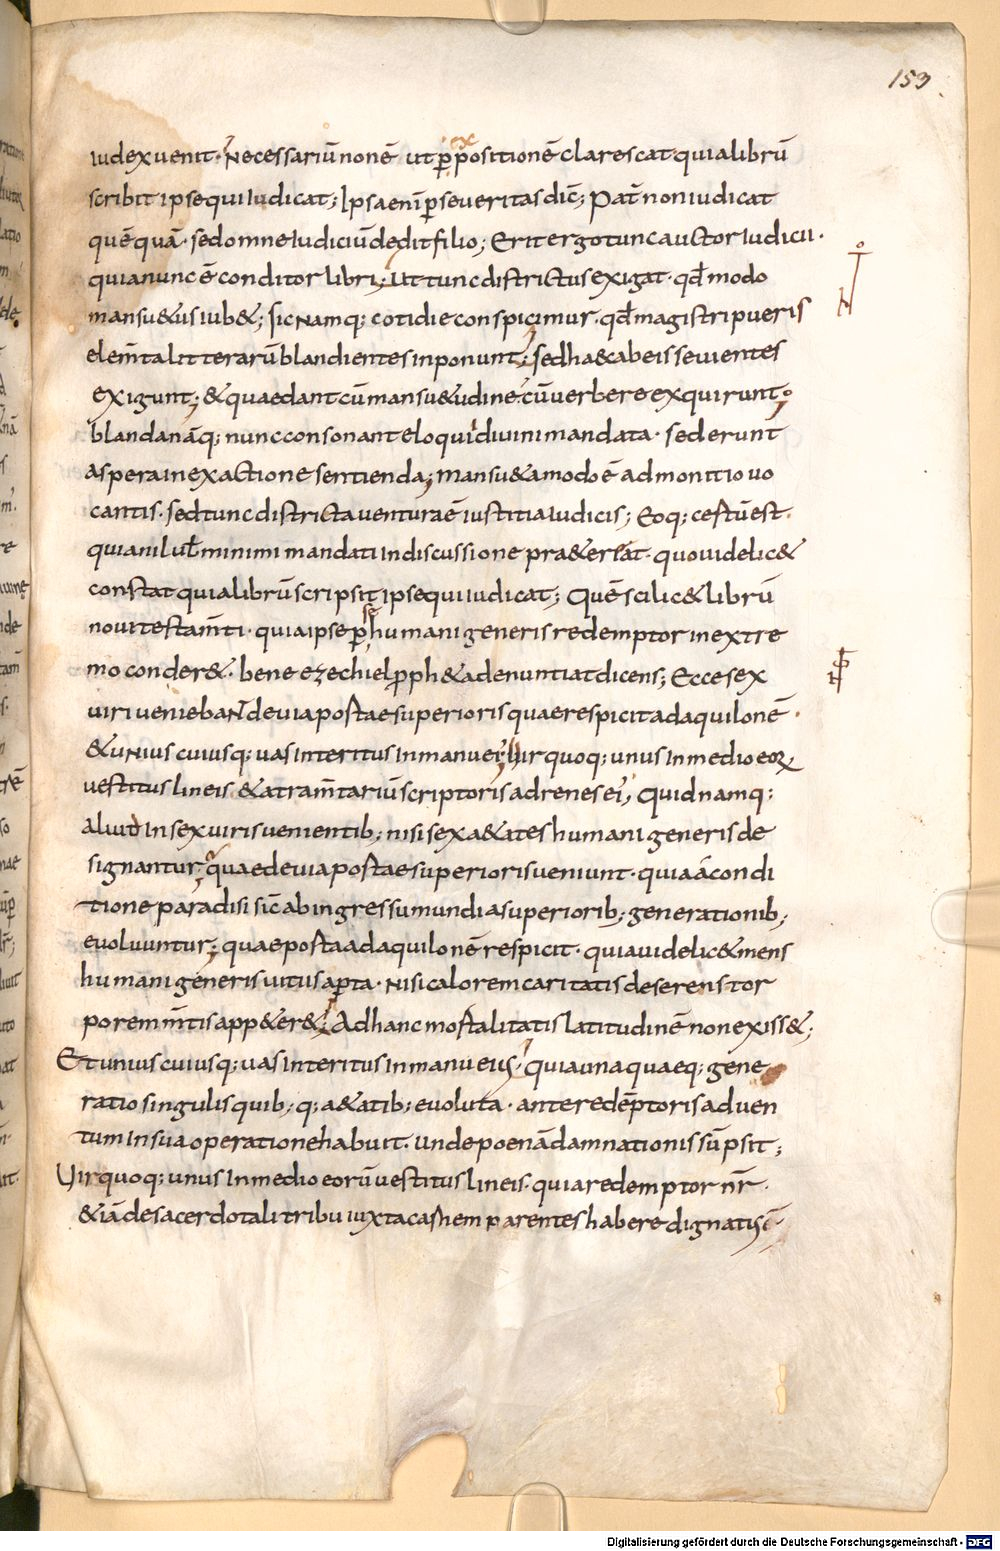 153
iudex uenit. Necessariū non ē ut p̄ expositionē clarescat quia librū
scribit ipse qui iudicat; Ipsa eni ꝑse ueritas dic̄; Pat̄ non iudicat
quēquā. sed omne iudiciū dedit filio; Erit ergo tunc auctor iudicii.
quia nunc ē conditor libri; ut tunc districtus exigat. qđ modo
mansu&us iub&; sic namq; cotidie conspicimur. qđ magistri pueris
elem̄ta litterarū blandientes inponunt; sed ha&c ab eis seuientes
exigunt; & quae dant cū mansu&udine. cū uerbere exquirunt;
blanda nāq; nunc consonant eloqui diuini mandata. sed erunt
aspera in exactione sentienda; mansu&a modo ē admonitio uo
cantis. sed tunc districta uentura ē iustitia iudicis; Eoq; certū est.
quia nil uł minimi mandati indiscussione pra&ereat. quo uidelic&
constat quia librū scripsit ipse qui iudicat; Quē scilic& librū
noui testam̄ti. quia ipse ꝑ se humani generis redemptor in extre
mo conder&. bene ezechiel ꝓph&a denuntiat dicens; Ecce sex
uiri ueniebant de uia postae superioris quae respicit ad aquilonē.
& unius cuiusq; uas interitus in manu ei; Uir quoq; unus in medio eoꝝ
uestitus lineis & atram̄tariū scriptoris ad renes ei; Quid namq;
aliud in sex uiris uenientib; nisi sex a&ates humani generis de
signantur; quae de uia postae superioris ueniunt. quia ā condi
tione paradisi sic̄ ab ingressu mundi a superiorib; generationib;
euoluuntur; quae posta ad aquilonē respicit. quia uidelic& mens
humani generis uitiis aꝑta. nisi calorem caritatis deserens tor
porem m̄tis app&er&; Ad hanc mostalitatis latitudinē non exiss&;
Et unius cuiusq; uas interitus in manu eius; quia una quaeq; gene
ratio singulis quib; q; a&atib; euoluta. ante redēptoris aduen
tum in sua operatione habuit. unde poenā damnationis sūpsit;
Uir quoq; unus in medio eorū uestitus lineis. quia redemptor nr̄.
& iā de sacerdotali tribu iuxta casnem parentes habere dignatus ē.
Digitalisierung gefördert durch die Deutsche Forschungsgemeinschaft - DFG